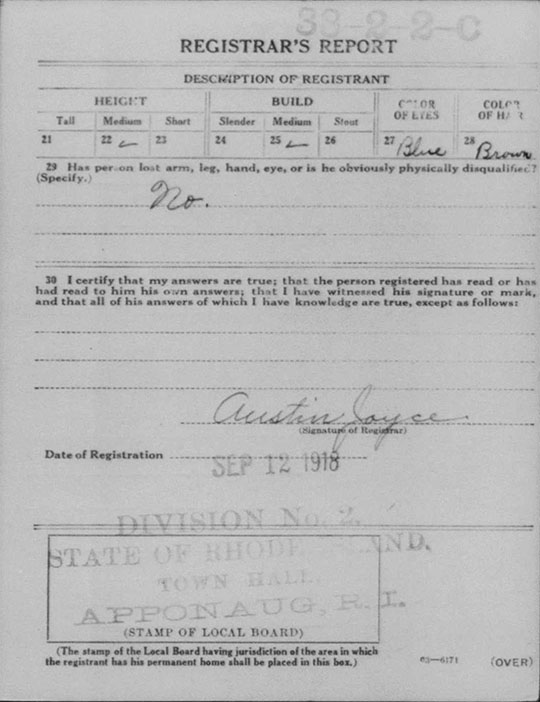 38-2-2-C
REGISTRAR'S REPORT
DESCRIPTION OF REGISTRANT
HEIGHT BUILD COLOR OF EYES COLOR OF HAIR
Tall Medium Short Slender Medium Stout
21 22 ✓ 23 24 25 ✓ 26 27 Blue 28 Brown
29 Has person lost arm, leg, hand, eye, or is he obviously physically disqualified?
(Specify.)
No.
30 I certify that my answers are true; that the person registered has read or has
had read to him his own answers; that I have witnessed his signature or mark,
and that all of his answers of which I have knowledge are true, except as follows:
Austin Joyce
(Signature of Registrar)
Date of Registration SEP 12 1918
DIVISION No. 2.
STATE OF RHODE ISLAND.
TOWN HALL,
APPONAUG, R. I.
(STAMP OF LOCAL BOARD)
(The stamp of the Local Board having jurisdiction of the area in which
the registrant has his permanent home shall be placed in this box.)
63—6171 (OVER)